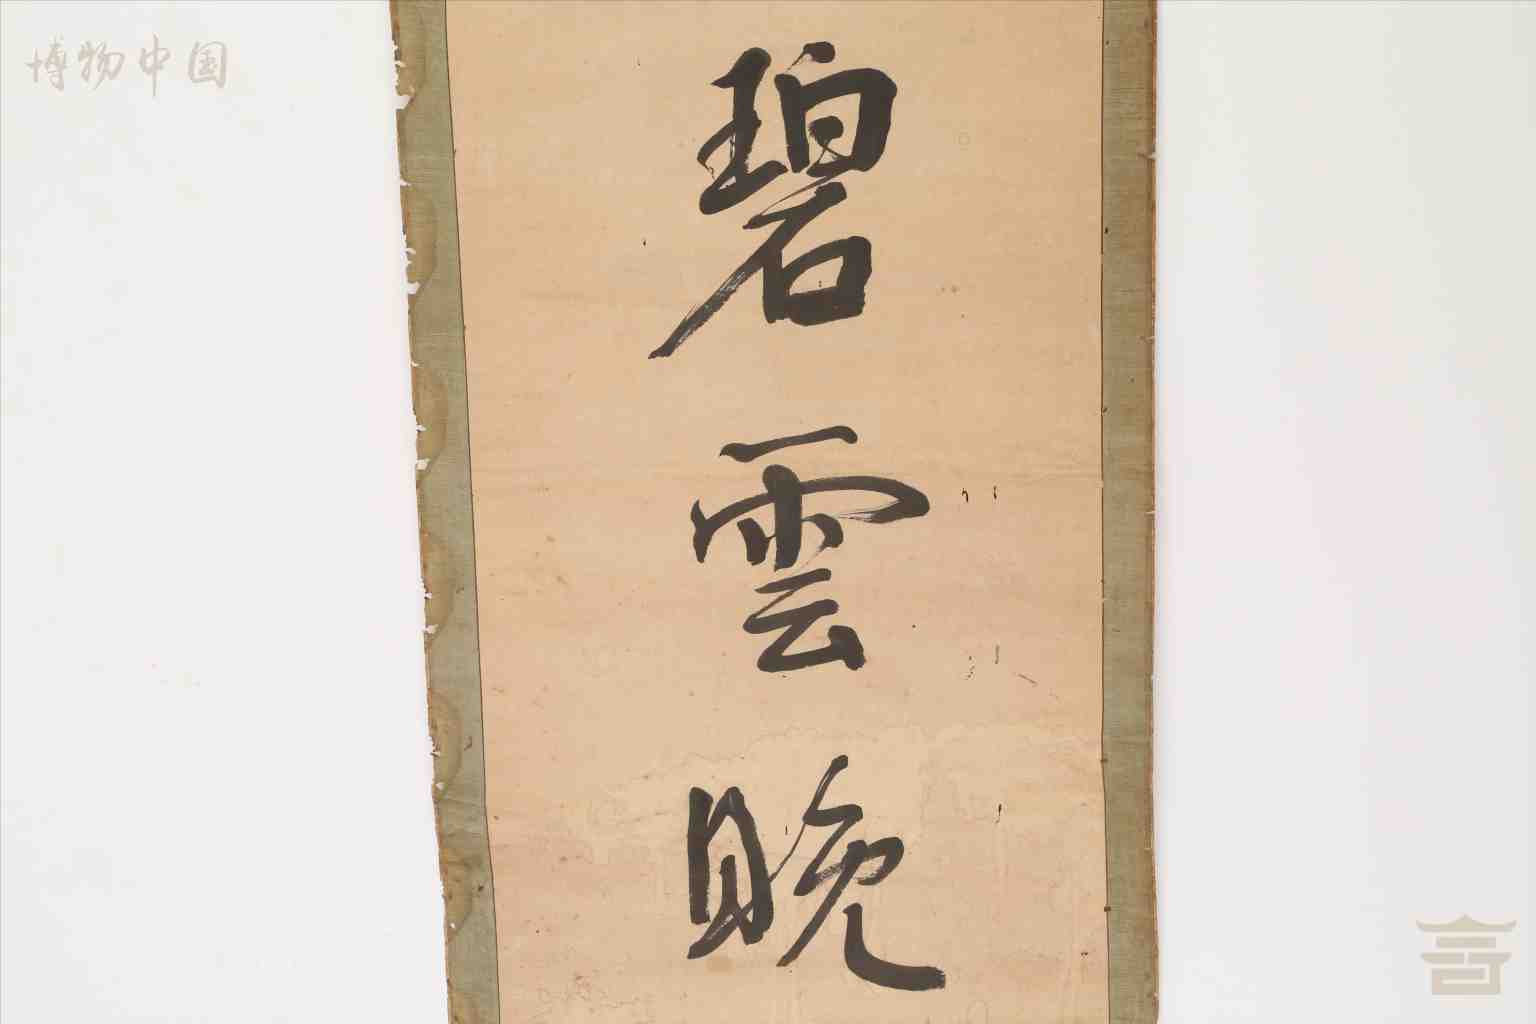 博物中国
碧雲晚